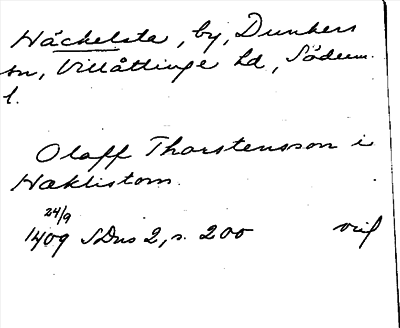 Häckelsta, by, Dunkers
sn, Villåttinge hd, Söderm.
l.
Olaff Thorstensson i
Haklistom.
24/9
1409 SDns 2, s. 200 orig